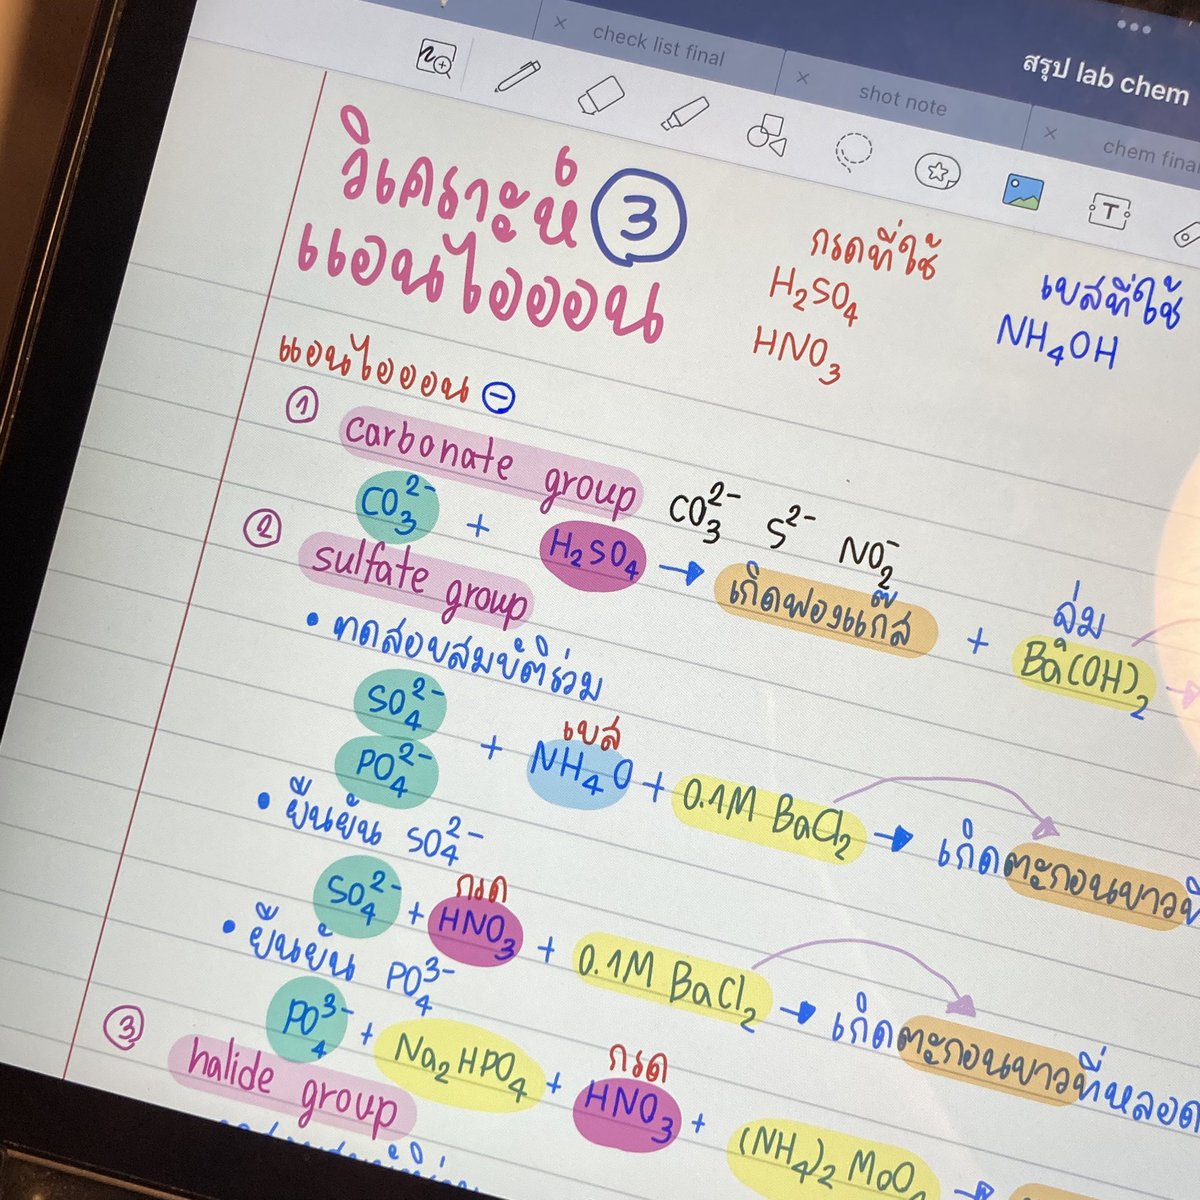 check list final
shot note
สรุป lab chem
chem final
วิเคราะห์ ③
แอนไอออน
กรดที่ใช้
H₂SO₄
HNO₃
เบสที่ใช้
NH₄OH
แอนไอออน ⊖
① carbonate group
CO₃²⁻ S²⁻ NO₂⁻
CO₃²⁻ + H₂SO₄ → เกิดฟองแก๊ส + จุ่ม Ba(OH)₂ →
② sulfate group
• ทดสอบสมบัติร่วม
เบส
SO₄²⁻
PO₄²⁻ + NH₄O + 0.1M BaCl₂ → เกิดตะกอนขาวที่
• ยืนยัน SO₄²⁻
กรด
SO₄²⁻ + HNO₃ + 0.1M BaCl₂ → เกิดตะกอนขาวที่หลอด
• ยืนยัน PO₄³⁻
กรด
PO₄³⁻ + Na₂HPO₄ + HNO₃ + (NH₄)₂MoO₄ →
③ halide group